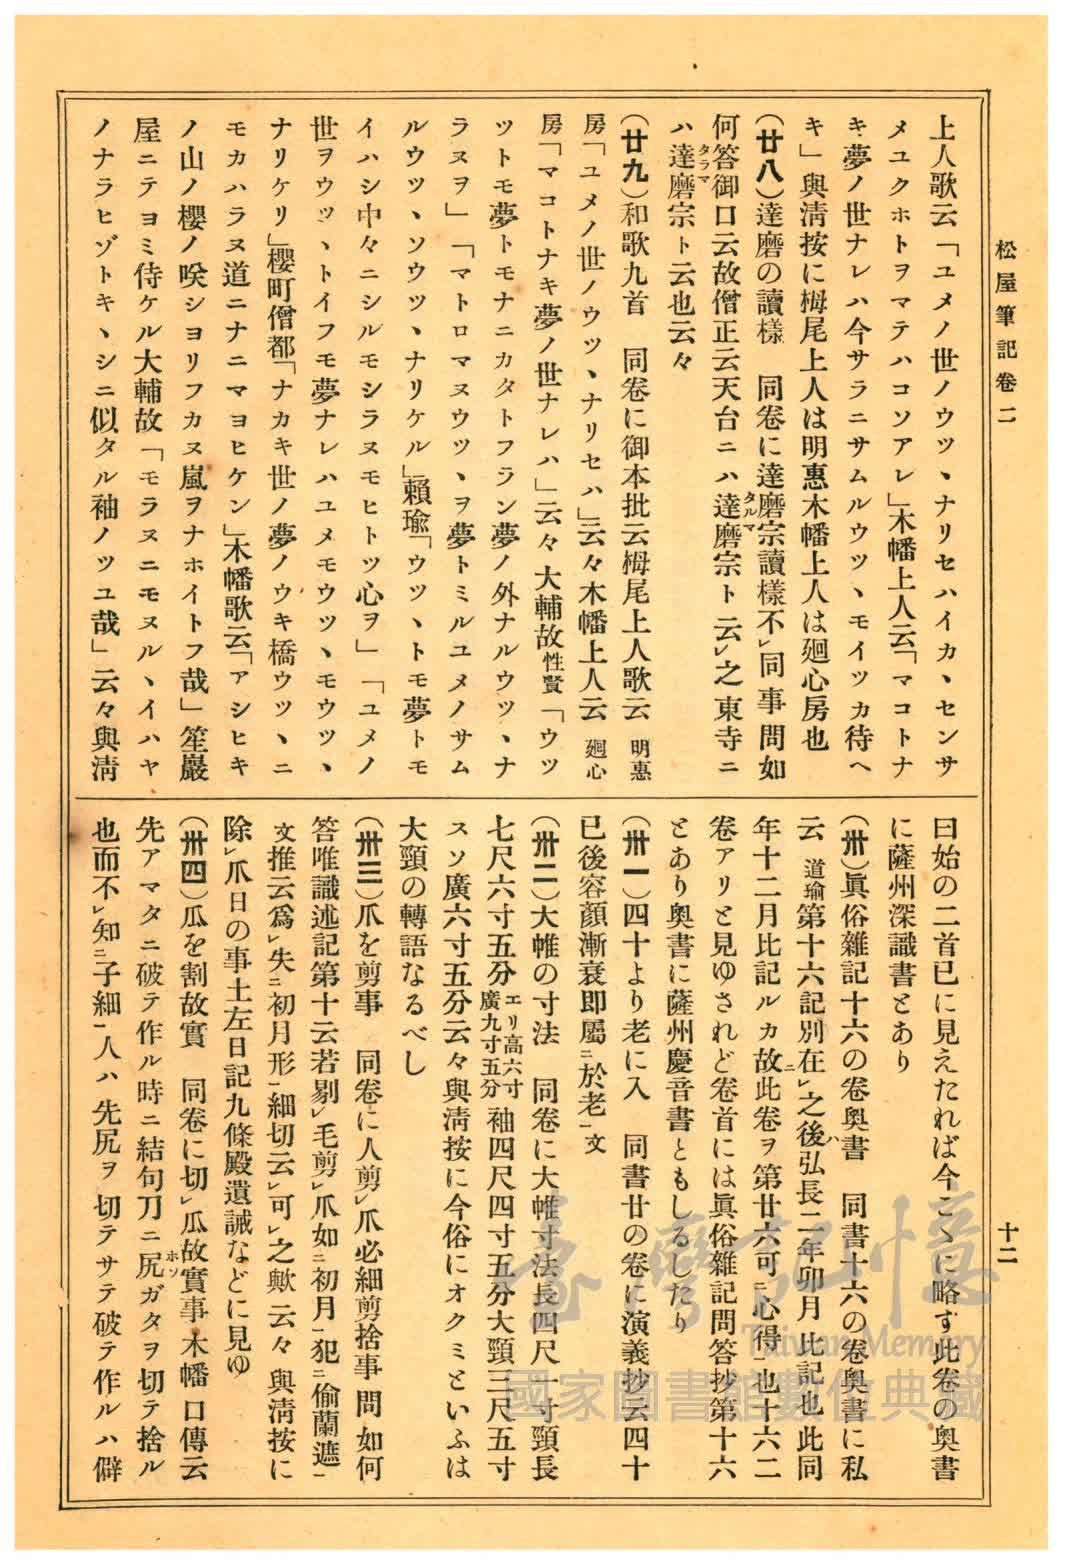 松屋筆記卷二
十二
上人歌云「ユメノ世ノウツヽナリセハイカヽセンサ
メユクホトヲマテハコソアレ」木幡上人云「マコトナ
キ夢ノ世ナレハ今サラニサムルウツヽモイツカ待ヘ
キ」與淸按に栂尾上人は明惠木幡上人は廻心房也
(廿八)達磨の讀樣　同卷に達磨宗讀樣不㆑同事問如
何答御口云故僧正云天台ニハ達磨宗(タルマ)ト云㆑之東寺ニ
ハ達磨宗(タラマ)ト云也云々
(廿九)和歌九首　同卷に御本批云栂尾上人歌云 明惠
房「ユメノ世ノウツヽナリセハ」云々木幡上人云 廻心
房「マコトナキ夢ノ世ナレハ」云々大輔故 性賢「ウツ
ツトモ夢トモナニカタトフラン夢ノ外ナルウツヽナ
ラヌヲ」「マトロマヌウツヽヲ夢トミルユメノサム
ルウツヽソウツヽナリケル」賴瑜「ウツヽトモ夢トモ
イハシ中々ニシルモシラヌモヒトツ心ヲ」「ユメノ
世ヲウツヽトイフモ夢ナレハユメモウツヽモウツヽ
ナリケリ」櫻町僧都「ナカキ世ノ夢ノウキ橋ウツヽニ
モカハラヌ道ニナニマヨヒケン」木幡歌云「アシヒキ
ノ山ノ櫻ノ咲シヨリフカヌ嵐ヲナホイトフ哉」笙巖
屋ニテヨミ侍ケル大輔故「モラヌニモヌルヽイハヤ
ノナラヒゾトキヽシニ似タル袖ノツユ哉」云々與淸
曰始の二首已に見えたれば今こゝに略す此卷の奧書
に薩州深識書とあり
(卅)眞俗雜記十六の卷奧書　同書十六の卷奧書に私
云 道瑜 第十六記別在㆑之後ハ弘長二年卯月比記也此同
年十二月比記ルカ故ニ此卷ヲ第廿六可㆓心得㆒也十六二
卷アリと見ゆされど卷首には眞俗雜記問答抄第十六
とあり奧書に薩州慶音書ともしるしたり
(卅一)四十より老に入　同書廿の卷に演義抄云四十
已後容顏漸衰即屬㆓於老㆒文
(卅二)大帷の寸法　同卷に大帷寸法長四尺一寸頸長
七尺六寸五分 エリ高六寸廣九寸五分 袖四尺四寸五分大頸三尺五寸
スソ廣六寸五分云々與淸按に今俗にオクミといふは
大頸の轉語なるべし
(卅三)爪を剪事　同卷に人剪㆑爪必細剪捨事問如何
答唯識述記第十云若剔㆑毛剪㆑爪如㆓初月㆒犯㆓偷蘭遮㆒
文推云爲㆑失㆓初月形㆒細切云㆑可㆑之歟云々與淸按に
除㆑爪日の事土左日記九條殿遺誡などに見ゆ
(卅四)瓜を割故實　同卷に切㆑瓜故實事木幡口傳云
先アマタニ破テ作ル時ニ結句刀ニ尻(ホソ)ガタヲ切テ捨ル
也而不㆑知㆓子細㆒人ハ先尻ヲ切テサテ破テ作ルハ僻
臺灣記憶
Taiwan Memory
國家圖書館數位典藏